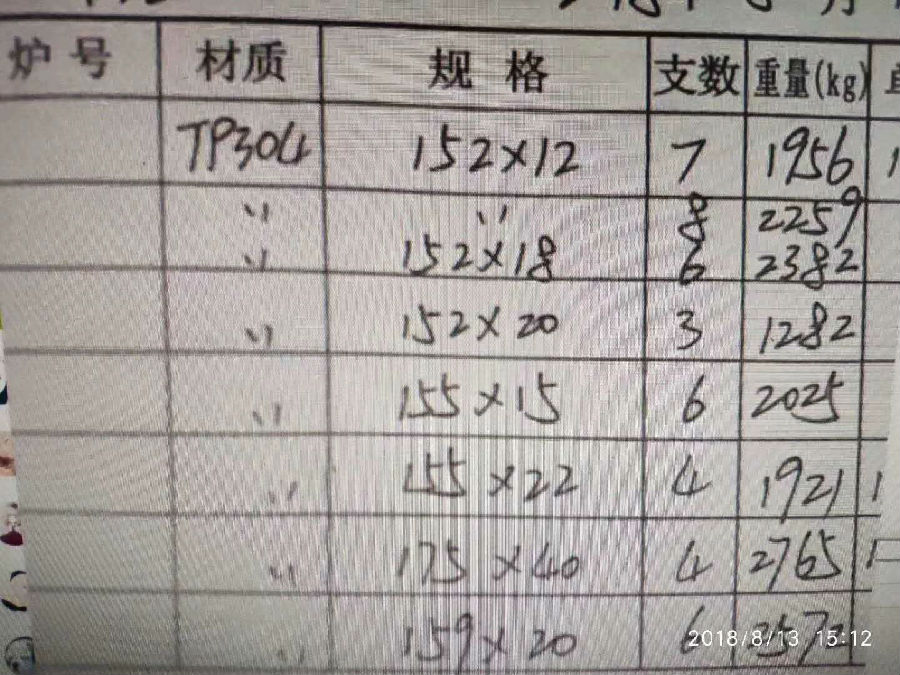 炉号 材质 规格 支数 重量(kg)
TP304 152×12 7 1956
〃 〃 8 2259
〃 152×18 6 2382
〃 152×20 3 1282
〃 155×15 6 2025
〃 155×22 4 1921
〃 175×40 4 2765
〃 159×20 6
2018/8/13 15:12